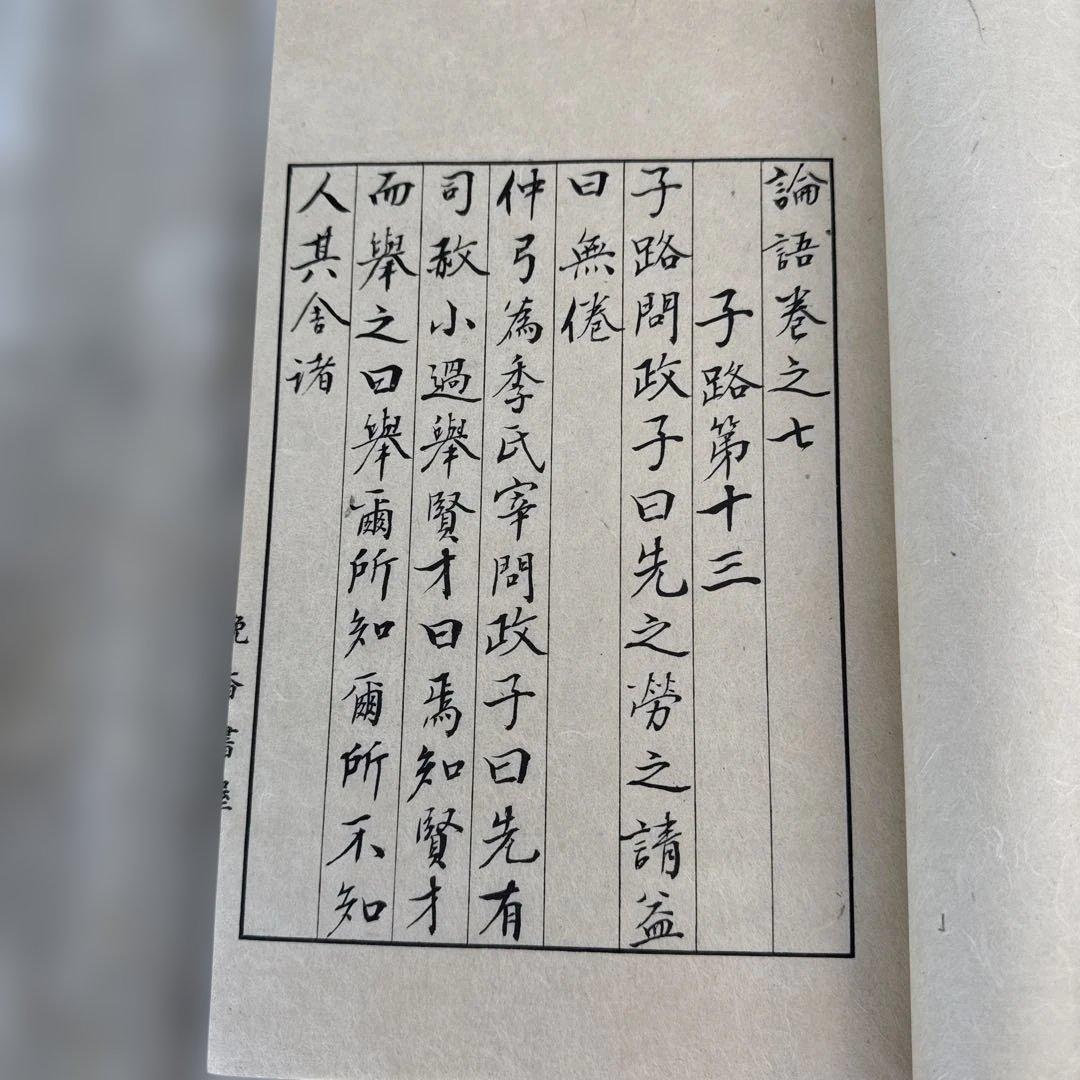 論語卷之七
子路第十三
子路問政子曰先之勞之請益
曰無倦
仲弓為季氏宰問政子曰先有
司赦小過舉賢才曰焉知賢才
而舉之曰舉爾所知爾所不知
人其舍诸
書屋